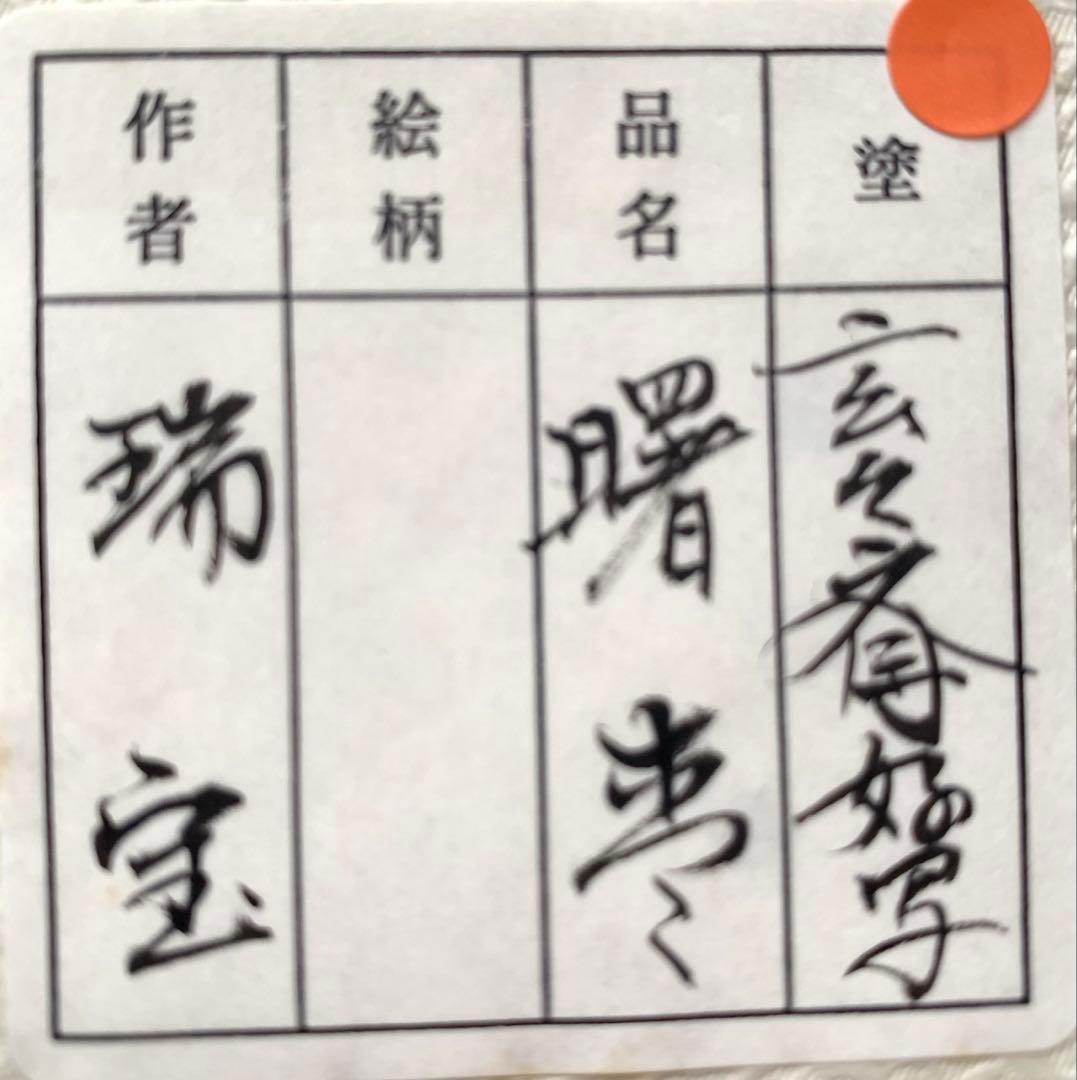 塗
玄々斎好写
品名
曙棗
絵柄
作者
瑞宝